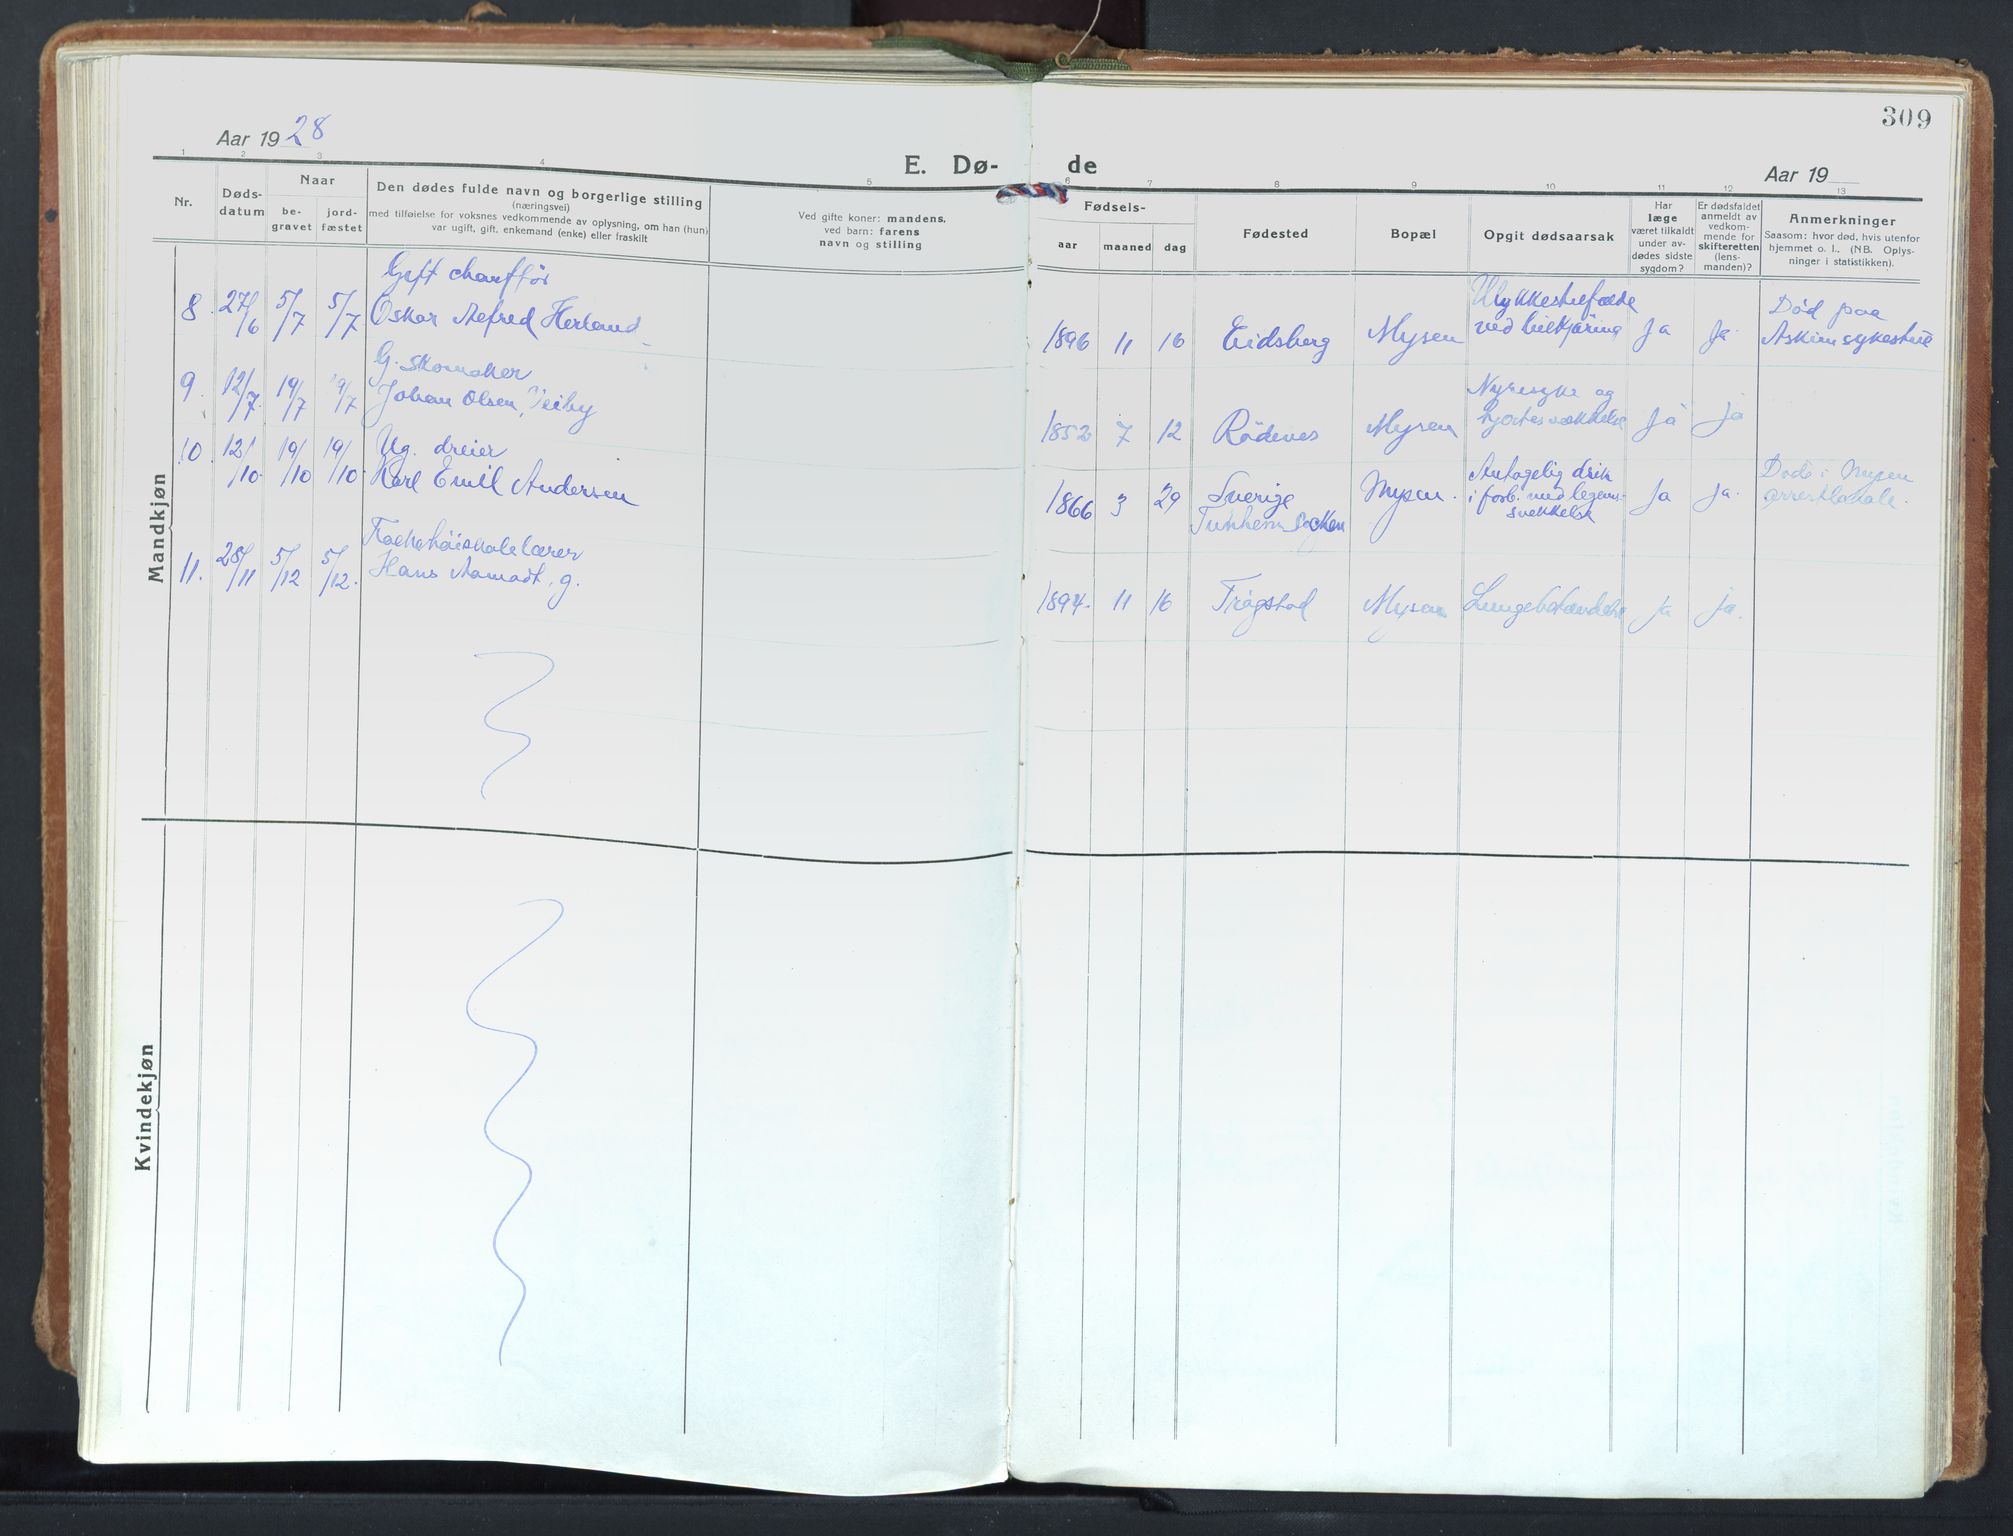 309
Aar 1928
E. Dø- de
Aar 19
1 2 3 4 5 6 7 8 9 10 11 12 13
Nr.
Døds-
datum
Naar
be-
gravet
jord-
fæstet
Den dødes fulde navn og borgerlige stilling
(næringsvei)
med tilføielse for voksnes vedkommende av oplysning, om han (hun)
var ugift, gift, enkemand (enke) eller fraskilt
Ved gifte koner: mandens,
ved barn: farens
navn og stilling
Fødsels-
aar maaned dag
Fødested
Bopæl
Opgit dødsaarsak
Har
læge
været tilkaldt
under av-
dødes sidste
sygdom?
Er dødsfaldet
anmeldt av
vedkom-
mende for
skifteretten
(lens-
manden)?
Anmerkninger
Saasom: hvor død, hvis utenfor
hjemmet o. l., (NB. Oplys-
ninger i statistikken).
Mandkjøn
Gift chauffør
8 27/6 5/7 5/7 Oskar Alfred Herland
1896 11 16 Eidsberg Mysen
Ulykkestilfælde
ved bilkjøring
Ja Ja
Død paa
Askim sykestue
G. skomaker
9. 12/7 19/7 19/7 Johan Olsen,
1852 7 12 Rödenes Mysen
Nyresyke og
hjertesvækkelse
Ja Ja
Ug. dreier
10. 12/10 19/10 19/10 Karl Emil Andersen
1866 3 29 Sverige
Tunhem Socken
Mysen.
Antagelig drik
i forb. med legems-
svekkelse
Ja Ja.
Døde i Mysen
arrestlokale.
Folkehöiskolelærer
11. 28/11 5/12 5/12. Hans Aamodt, g.
1894. 11 16 Trøgstad Mysen Lungebetændelse Ja Ja.
Kvindekjøn